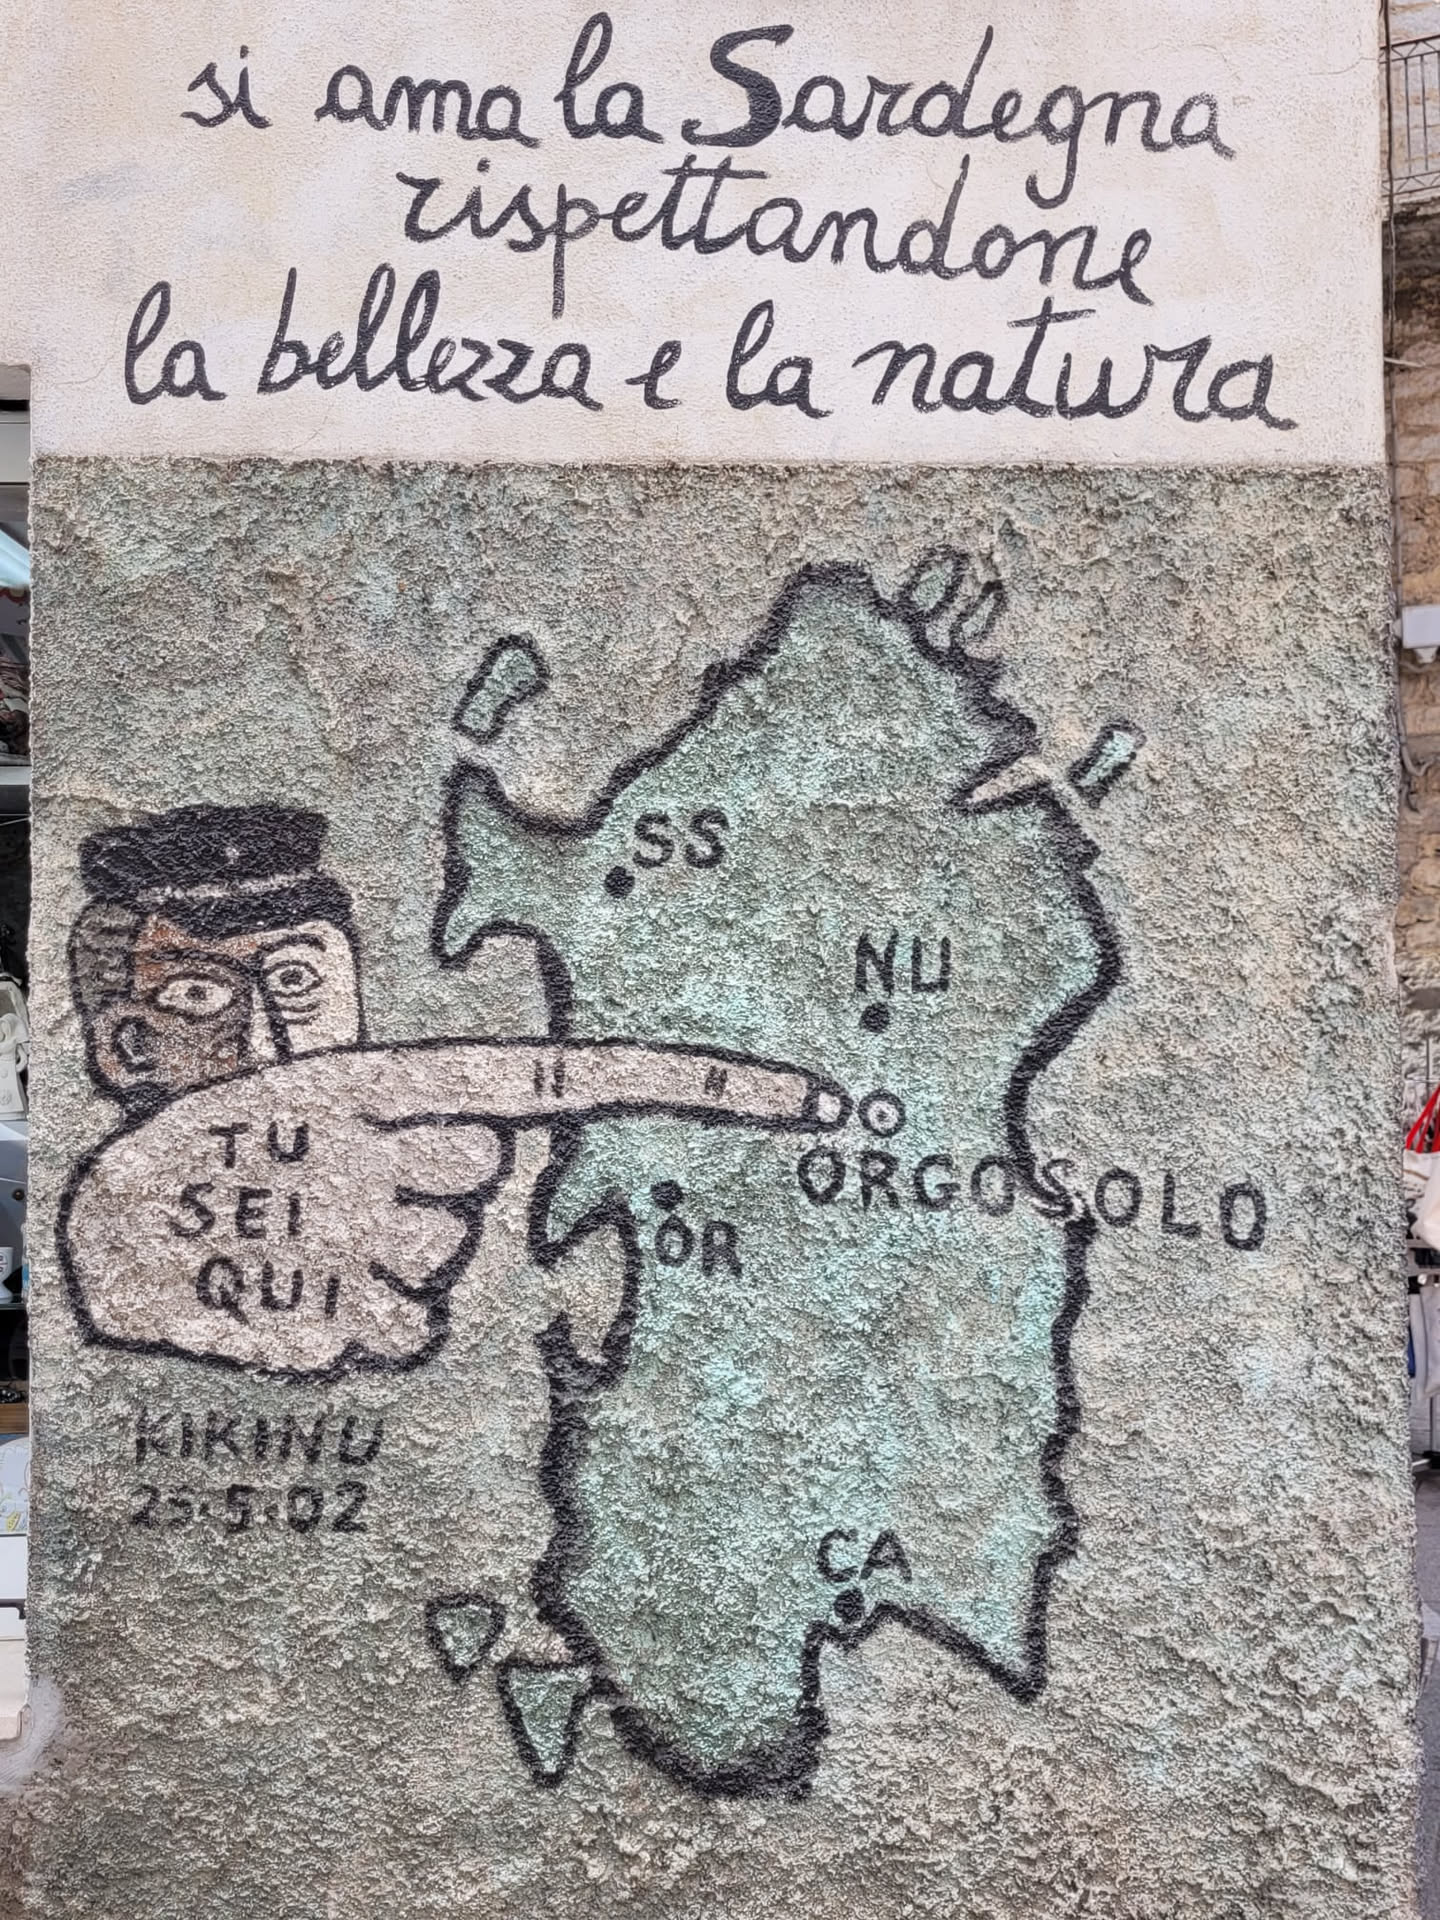 si ama la Sardegna
rispettandone
la bellezza e la natura
SS
NU
TU
SEI
QUI
ORGOSOLO
OR
KIKINU
25.5.02
CA